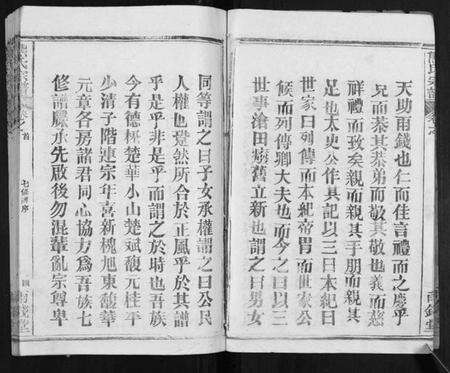 天助雨錢也仁而佳言禮而之慶乎
兄而恭其恭弟而敬其敬也義而慈
祥禮而致矣親而親其手朋而親其
足也太史公作其記以三曰本紀曰
世家曰列傳而本紀帝胄而世家公
候而列傳卿大夫也而今之曰以三
世事滄田㷼舊立新也謂之曰男女
同等謂之曰子女承權謂之曰公民
人權也豈然所合於正風乎於其譜
是乎而非是乎而謂之於時也吾族
今有德極楚華小山楚斌馥元桂平
少清子階連宗年喜新槐旭東馥華
元章各房諸君同心協力為吾族七
修譜願承先啟後勿混輩亂宗尊卑
氏宗譜
卷之首
七修譜序
四
雨錢堂